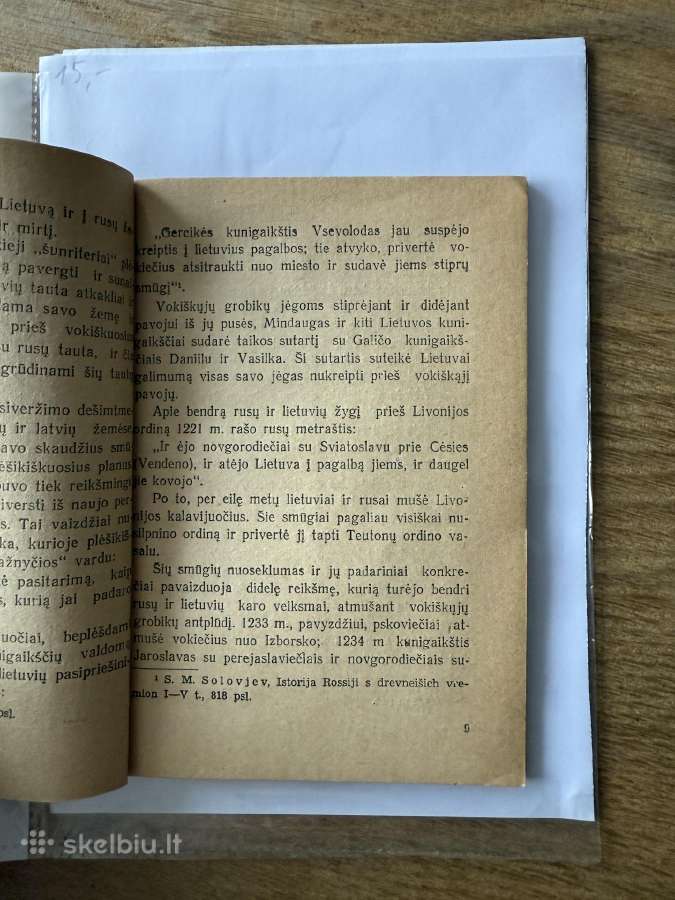 15,-
Lietuvą ir į rusų
ir mirtį.
„šunriteriai"
pavergti ir
tauta atkakliai
savo žemę ir
prieš vokiškuosius
su rusų tauta, ir
grūdinami šių
siveržimo
ų ir latvių žemėse
savo skaudžius
plėšikiškuosius planus
buvo tiek reikšmingi
iš naujo
s. Tai vaizdžiai
ka, kurioje
vardu:
pasitarimą, kaip
s, kurią jai padarė
beplėšdami
valdomą
lietuvių
psl.
„Gercikės kunigaikštis Vsevolodas jau suspėjo
kreiptis į lietuvius pagalbos; tie atvyko, privertė vo-
kiečius atsitraukti nuo miesto ir sudavė jiems stiprų
smūgį"¹.
Vokiškųjų grobikų jėgoms stiprėjant ir didėjant
pavojui iš jų pusės, Mindaugas ir kiti Lietuvos kuni-
gaikščiai sudarė taikos sutartį su Galičo kunigaikš-
čiais Daniilu ir Vasilka. Ši sutartis suteikė Lietuvai
galimumą visas savo jėgas nukreipti prieš vokiškąjį
pavojų.
Apie bendrą rusų ir lietuvių žygį prieš Livonijos
ordiną 1221 m. rašo rusų metraštis:
„Ir ėjo novgorodiečiai su Sviatoslavu prie Cėsies
(Vendeno), ir atėjo Lietuva į pagalbą jiems, ir daugel
jie kovojo".
Po to, per eilę metų lietuviai ir rusai mušė Livo-
nijos kalavijuočius. Šie smūgiai pagaliau visiškai nu-
silpnino ordiną ir privertė jį tapti Teutonų ordino va-
salu.
Šių smūgių nuoseklumas ir jų padariniai konkre-
čiai pavaizduoja didelę reikšmę, kurią turėjo bendri
rusų ir lietuvių karo veiksmai, atmušant vokiškųjų
grobikų antplūdį. 1233 m., pavyzdžiui, pskoviečiai at-
mušė vokiečius nuo Izborsko; 1234 m kunigaikštis
Jaroslavas su perejaslaviečiais ir novgorodiečiais su-
¹ S. M. Solovjev, Istorija Rossiji s drevneišich vre-
mion I—V t., 818 psl.
9
skelbiu.lt